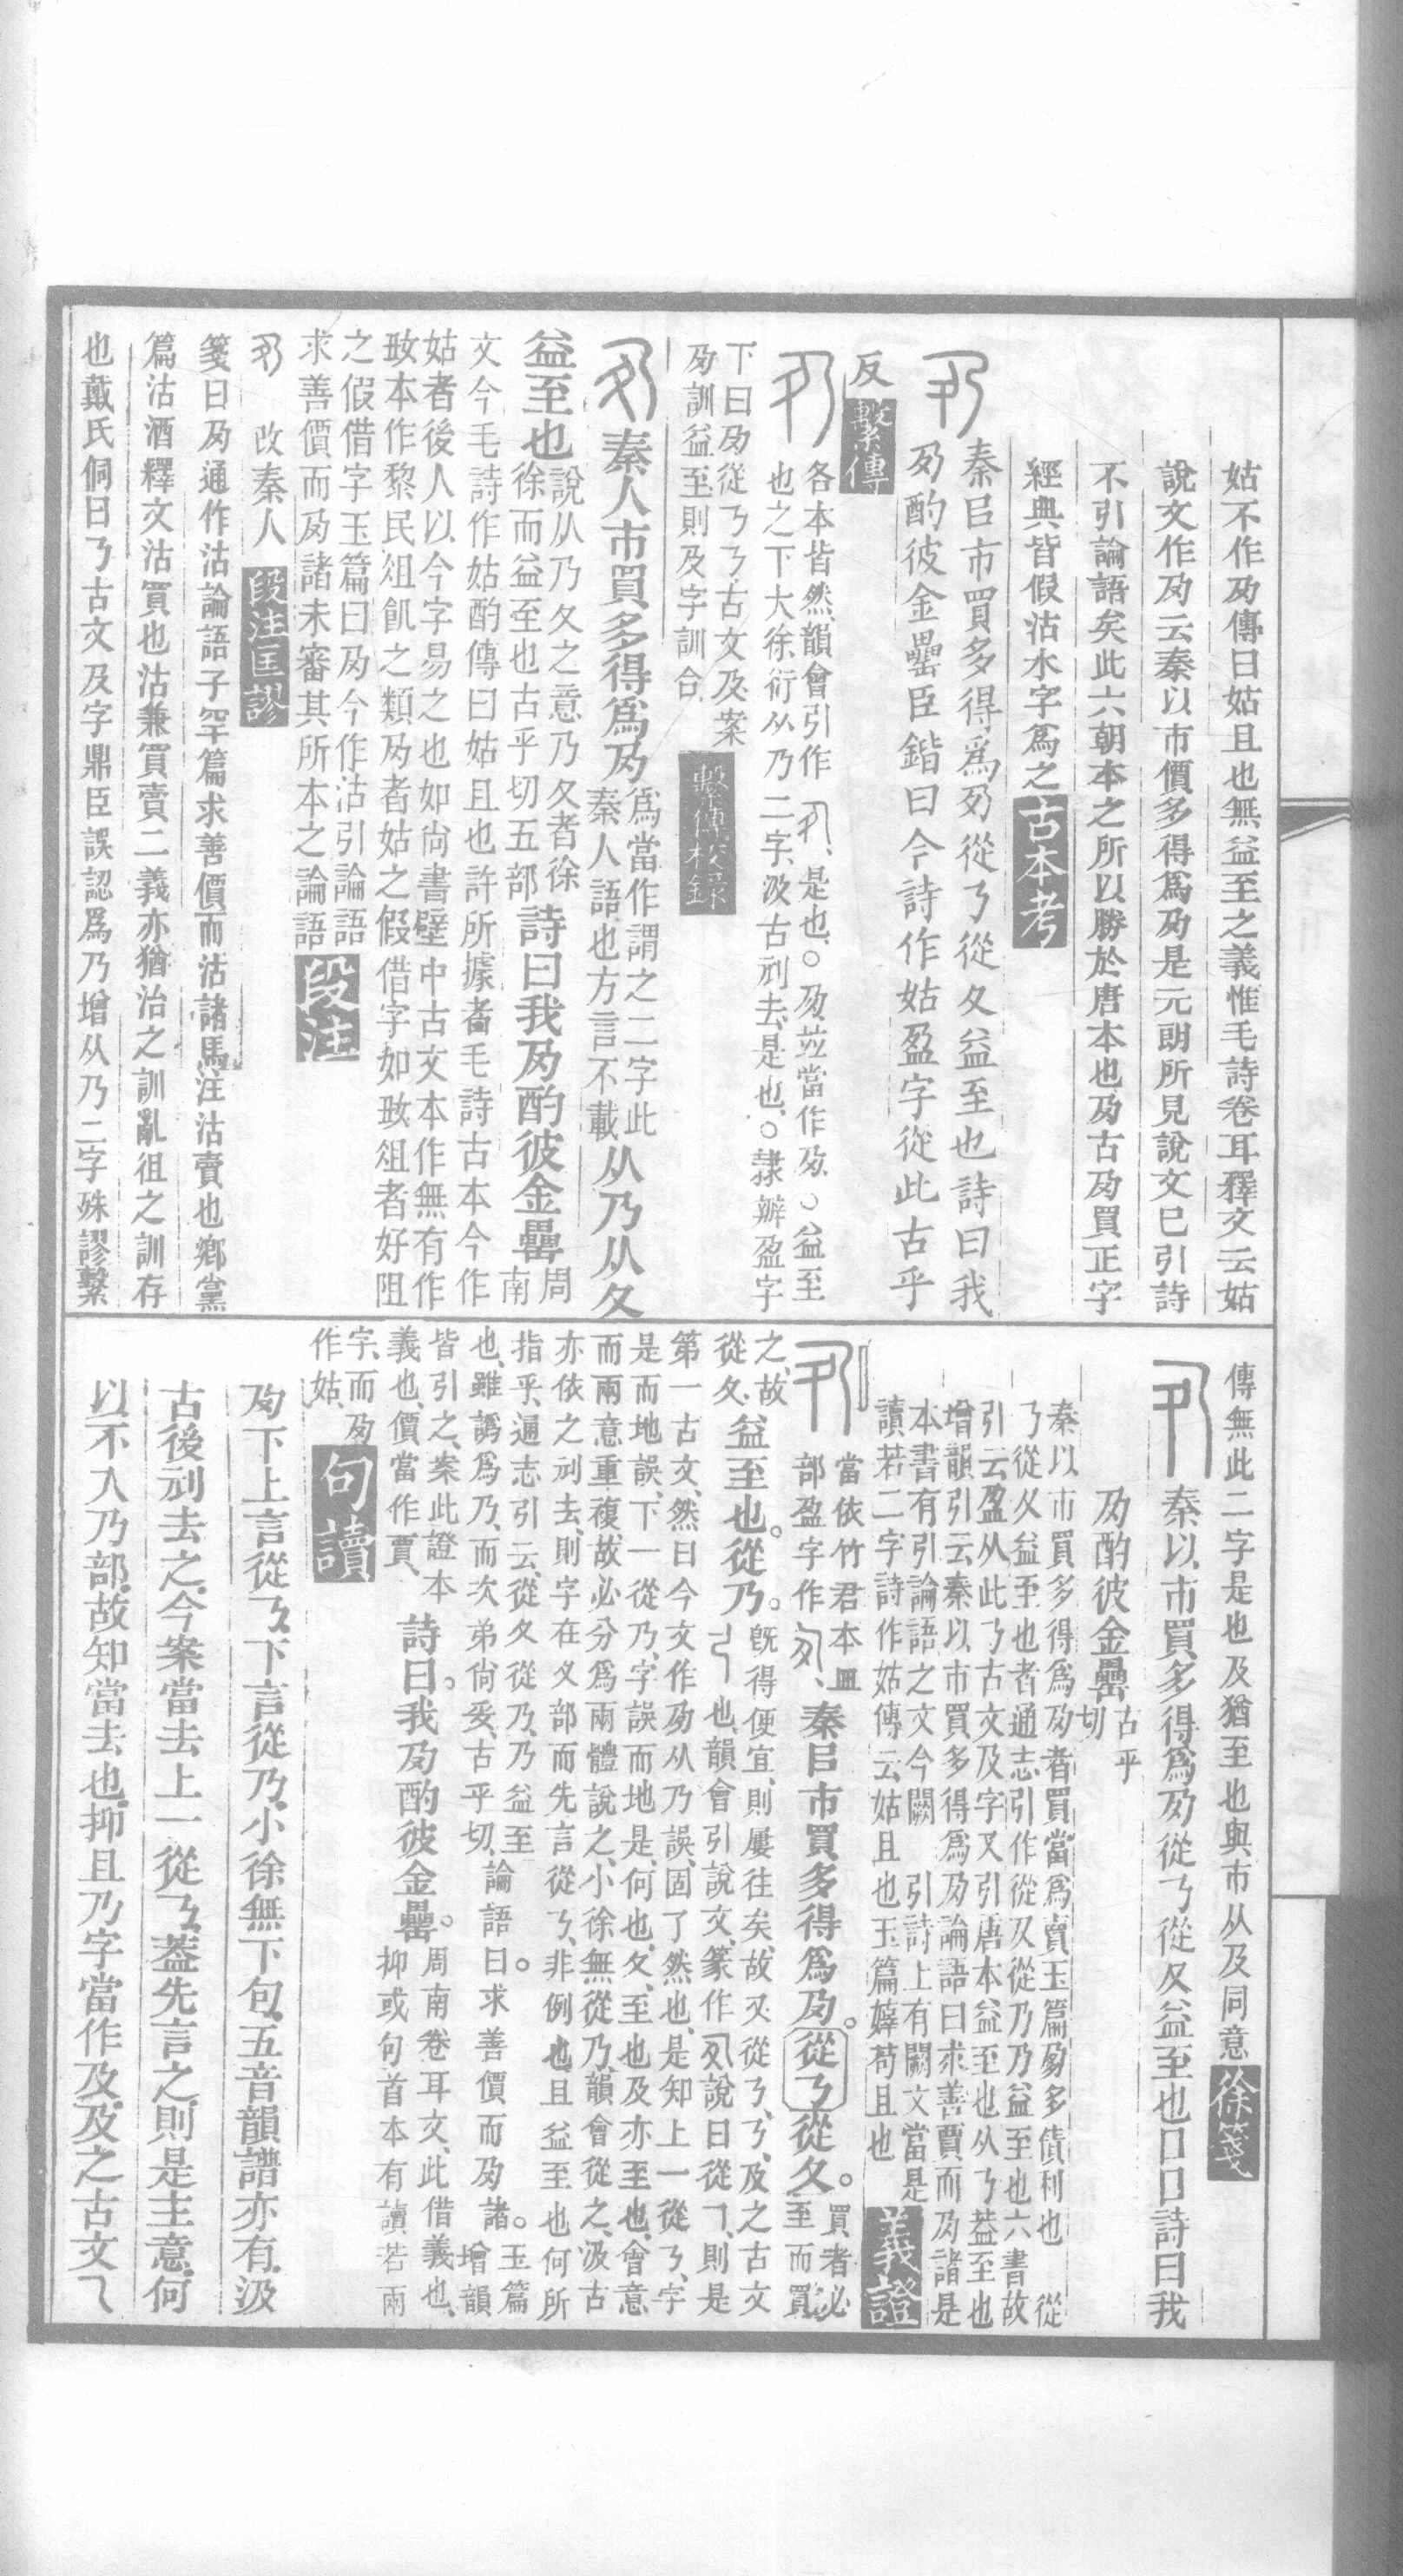 姑不作夃傳曰姑且也無益至之義惟毛詩卷耳釋文云姑
說文作夃云秦以市價多得爲夃是元朗所見說文巳引詩
不引論語矣此六朝本之所以勝於唐本也夃古夃買正字
經典皆假沽水字爲之古本考
秦㠯市買多得爲夃從𠄎從夂益至也詩曰我
夃酌彼金罍臣鍇曰今詩作姑盈字從此古乎
反繫傳
各本皆然韻會引作 是也○夃並當作夃○益至
也之下大徐衍从乃二字汲古刓去是也○隸辨盈字
下曰夃從𠄎𠄎古文及案
夃訓益至則及字訓合繫傳校錄
秦人市買多得爲夃
爲當作謂之二字此
秦人語也方言不載
从乃从夂
益至也
說从乃夂之意乃夂者徐
徐而益至也古乎切五部
詩曰我夃酌彼金罍
周
南
文今毛詩作姑酌傳曰姑且也許所據者毛詩古本今作
姑者後人以今字易之也如尙書壁中古文本作無有作
𢻫本作黎民俎飢之類夃者姑之假借字如𢻫俎者好阻
之假借字玉篇曰夃今作沽引論語
求善價而夃諸未審其所本之論語
段注
夃 改秦人段注匡謬
箋曰夃通作沽論語子罕篇求善價而沽諸馬注沽賣也鄉黨
篇沽酒釋文沽買也沽兼買賣二義亦猶治之訓亂徂之訓存
也戴氏侗曰𠄎古文及字鼎臣誤認爲乃增从乃二字殊謬繫
傳無此二字是也及猶至也與市从及同意徐箋
秦以市買多得爲夃從𠄎從夂益至也口口詩曰我
夃酌彼金罍
古乎
切
秦以市買多得爲夃者買當爲賣玉篇夃多債利也 從
𠄎從夂益至也者通志引作從夂從乃乃益至也六書故
引云盈从此𠄎古文及字又引唐本益至也从𠄎益至也
增韻引云秦以市買多得爲夃論語曰求善賈而夃諸是
本書有引論語之文今闕 引詩上有闕文當是
讀若二字詩作姑傳云姑且也玉篇嫴苟且也
義證
當依竹君本皿
部盈字作
秦㠯市買多得爲夃。從𠄎從夂。
買者必
至而買
之故
從夂
益至也。從乃。
旣得便宜則屢往矣故又從𠄎𠄎及之古文
也韻會引說文篆作 說曰從 則是
第一古文然曰今文作夃从乃誤固了然也是知上一從𠄎字
是而地誤下一從乃字誤而地是何也夂至也及亦至也會意
而兩意重複故必分爲兩體說之小徐無從乃韻會從之汲古
亦依之刓去則字在夂部而先言從𠄎非例也且益至也何所
指乎通志引云從夂從乃乃益至
也雖譌爲乃而次弟尙妥古乎切
論語曰。求善價而夃諸。
玉篇
增韻
皆引之案此證本
義也價當作賈
詩曰。我夃酌彼金罍。
周南卷耳文此借義也
抑或句首本有讀若兩
字而夃
作姑
句讀
夃下上言從𠄎下言從乃小徐無下句五音韻譜亦有汲
古後刓去之今案當去上一從𠄎葢先言之則是主意何
以不入乃部故知當去也抑且乃字當作及及之古文乁